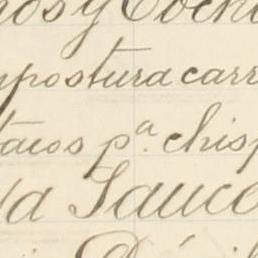 nos y Coche
mpostura carr
tacos p.ª chisp
da Sauce